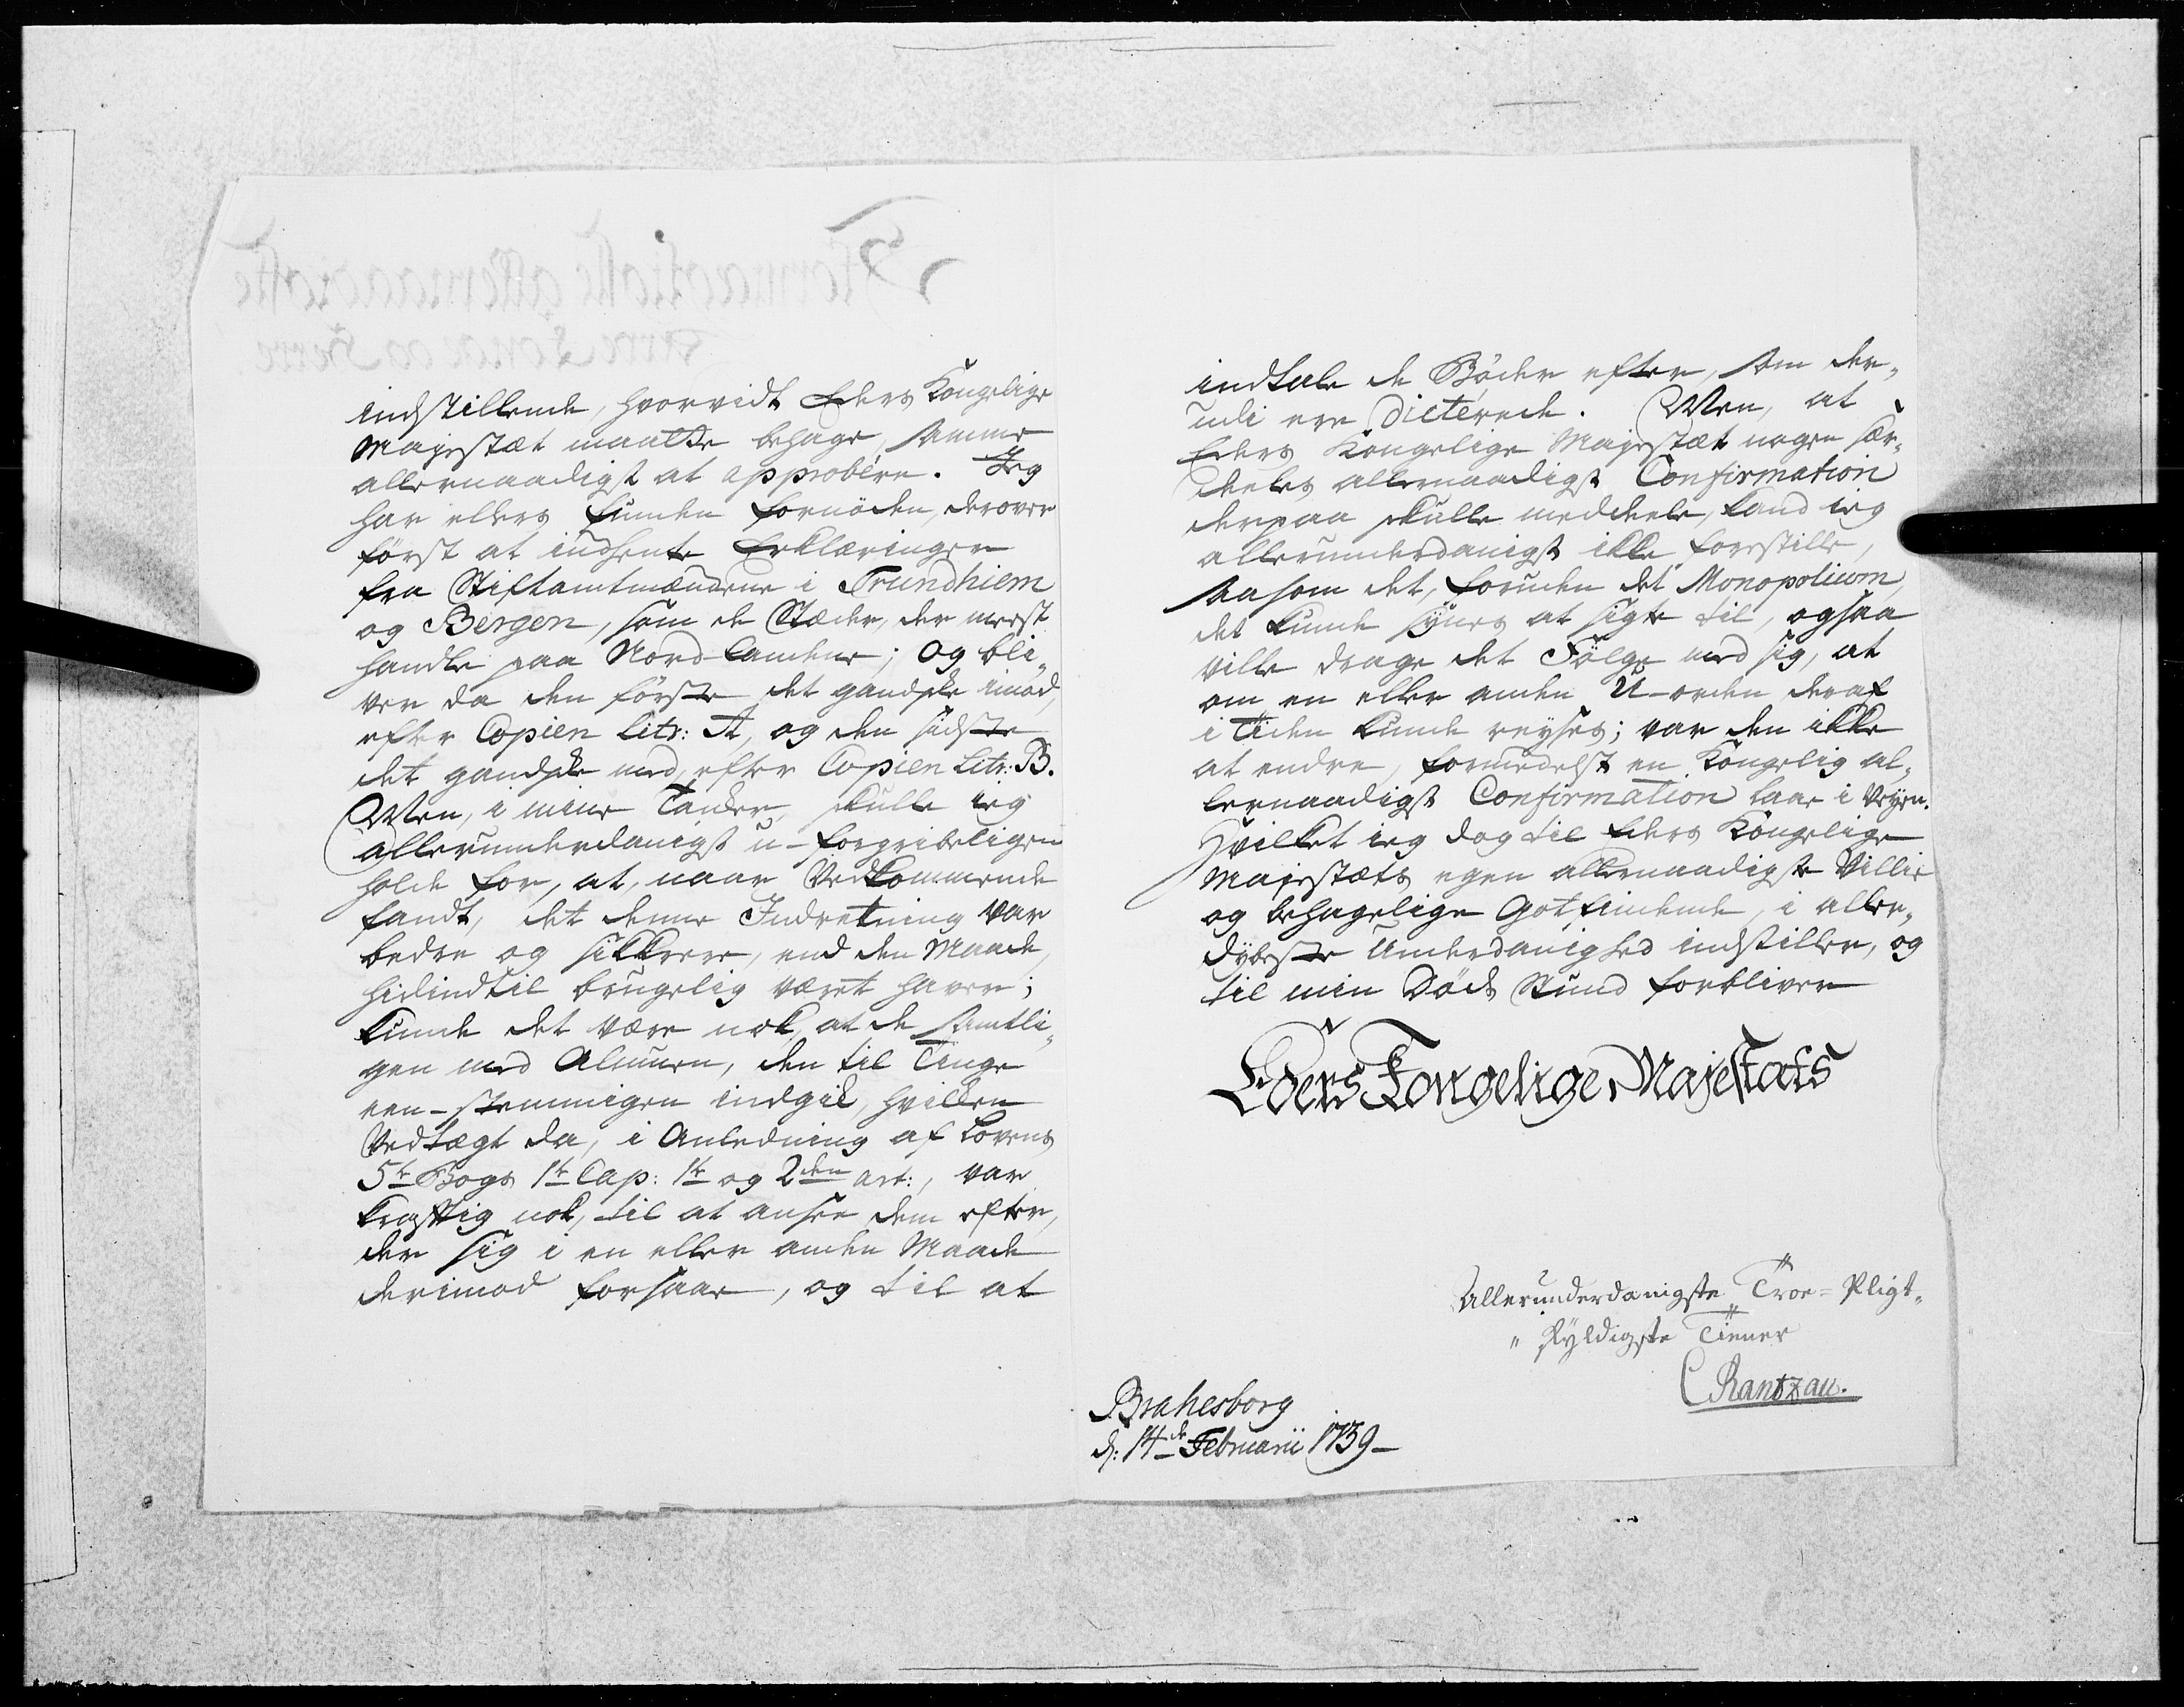 indstillende, hvorvidt Eders Kongelige
Majestæt maatte behage, samme
allernaadigst at approbére. Jeg
har ellers funden fornöden, derover
först at indhente Erklæringer
fra Stiftamtmændene i Trundhiem
og Bergen, som de Stæder, der meest
handle paa Nordlandene; og bli„
ver da den förste det gandske imod,
efter Copien Litr: A, og den sidste
det gandske med, efter Copien Litr: B.
Men, i mine Tanker, skulle ieg
allerunderdanigst u-forgribeligen
holde for, at, naar Vedkommende
fandt, det denne Indretning var
bedre og sikkrere, end den Maade,
hidindtil brugelig været haver;
kunde det være nok, at de samtli„
gen med Almuen, den til Tinge
een-stemmigen indgik, hvilken
Vedtægt da, i Anledning af Lovens
5te Bogs 1te Cap: 1te og 2den art:, var
kraftig nok, til at ansee dem efter,
der sig i en eller anden Maade
derimod forsaae, og til at
indtale de Böder efter, som der„
udi ere Dictérede. Men, at
Eders Kongelige Majestæt nogen sær„
deeles allernaadigst Confirmation
derpaa skulle meddeele, kand ieg
allerunderdanigst ikke forestille,
saasom det, foruden det Monopolium,
det kunde synes at sigte til, ogsaa
ville drage det Fölge med sig, at
om en eller anden U-orden deraf
i Tiden kunde reyses; var den ikke
at endre, formedelst en Kongelig al„
lernaadigst Confirmation laae i Veyen.
Hvilket ieg dog til Eders Kongelige
Majestæts egen allernaadigste Villie
og behagelige Gotfindende, i aller„
dybeste Underdanighed indstiller, og
til min Döds Stund forbliver
Eders Kongelige Majestæts
Allerunderdanigste Troe=Pligt„
„skyldigste Tiener
CRantzau.
Brahesborg
d: 14de Februarii 1739